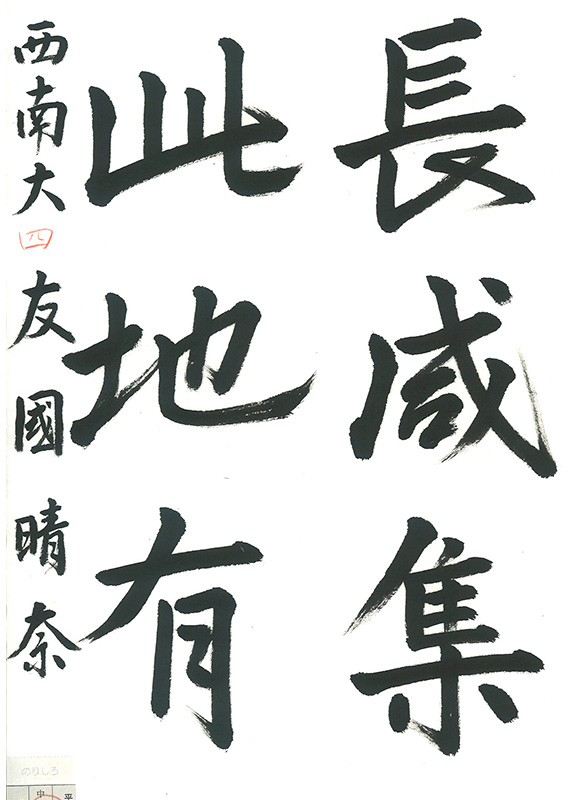 長咸集
此地有
西南大四 友國晴奈
のりしろ
中 平